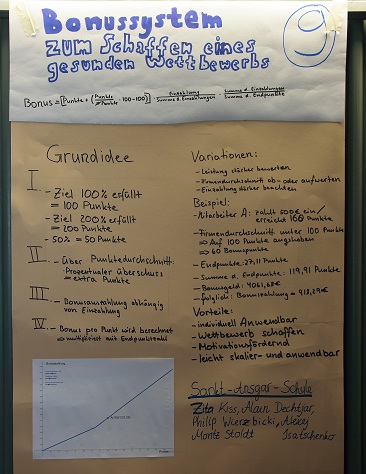 Bonussystem
zum Schaffen eines
gesunden Wettbewerbs
9
Grundidee
I
- Ziel 100% erfüllt
= 100 Punkte
- Ziel 200% erfüllt
= 200 Punkte
- 50% = 50 Punkte
II
- Über Punktedurchschnitt:
Prozentualer Überschuss
= extra Punkte
III
- Bonusauszahlung abhängig
von Einzahlung
IV
- Bonus pro Punkt wird berechnet
⇒ multipliziert mit Endpunktzahl
Variationen:
- Leistung stärker bewerten
- Firmendurchschnitt ab- oder aufwerten
- Einzahlung stärker beachten
Beispiel:
- Mitarbeiter A: zahlt 500€ ein/
erreicht 160 Punkte
- Firmendurchschnitt unter 100 Punkte
⇒ Auf 100 Punkte angehoben
⇒ 60 Bonuspunkte
- Endpunkte: 27,11 Punkte
- Summe d. Endpunkte: 119,91 Punkte
- Bonusgeld: 4061,68€
- folglich: Bonuszahlung = 918,29€
Vorteile:
- individuell Anwendbar
- Wettbewerb schaffen
- Motivationsfördernd
- leicht skalier- und anwendbar
Sankt-Ansgar-Schule
Zita Kiss, Alain Dechtjar,
Philip Wierzbicki, Alexej
Moritz Stoldt Isatschenko